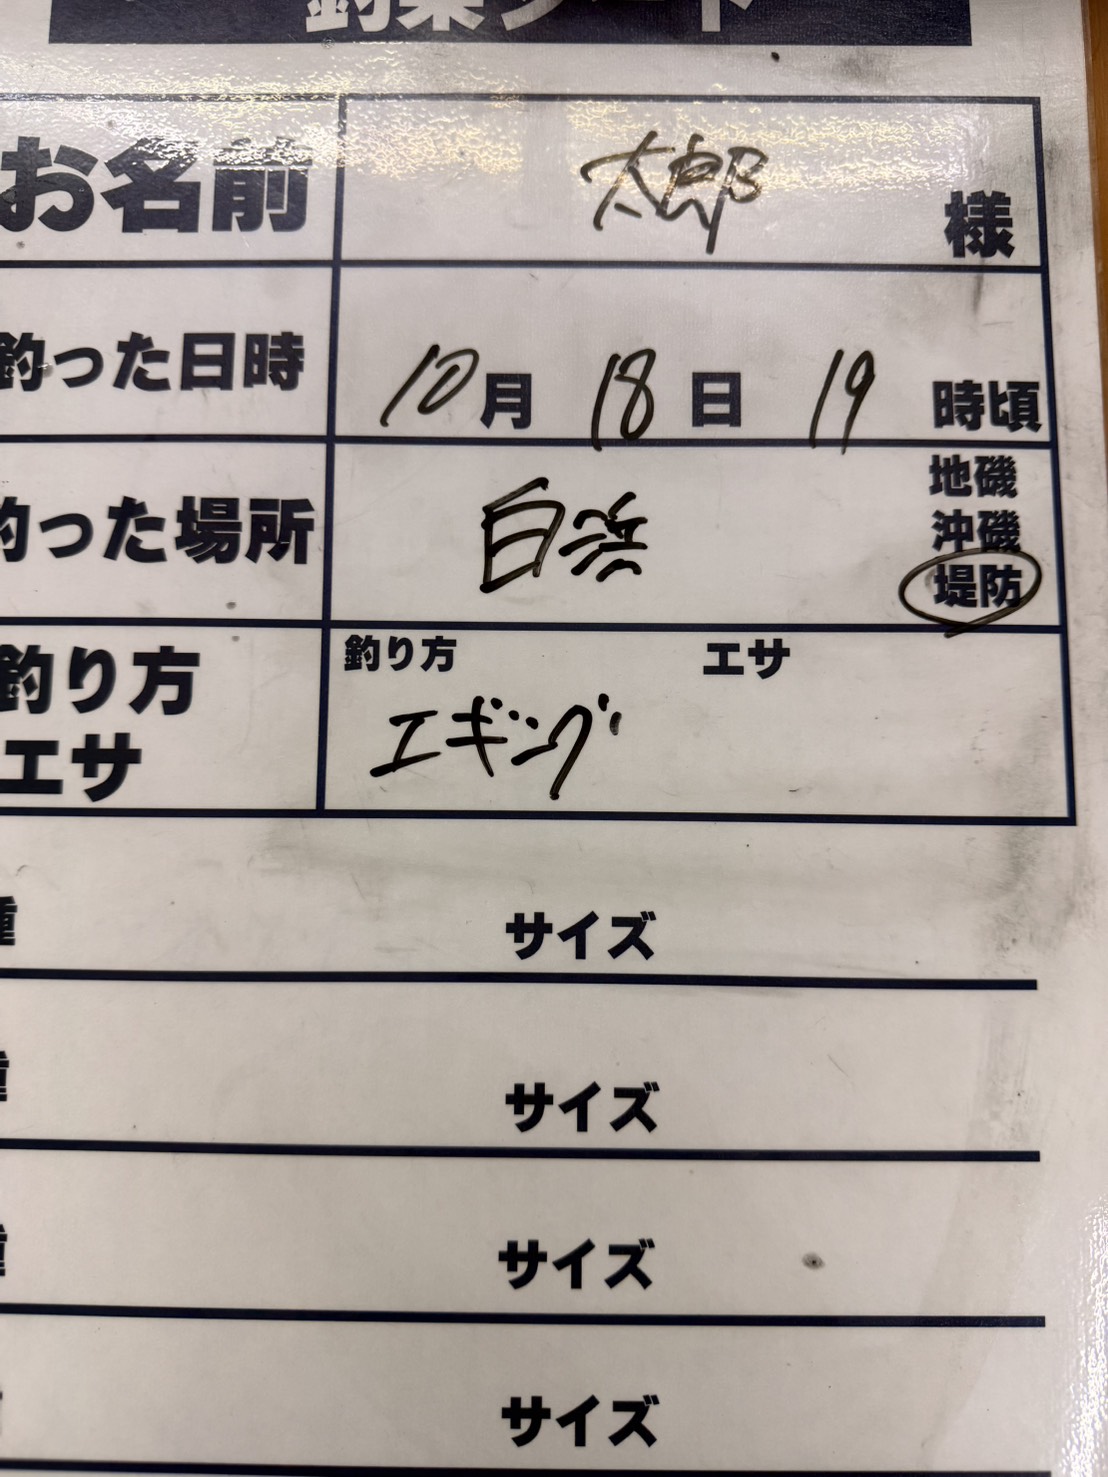 釣果シート
お名前 太郎 様
釣った日時 10月 18日 19時頃
釣った場所 白浜 地磯
沖磯
堤防
釣り方
エサ
釣り方 エサ
エギング
種 サイズ
種 サイズ
種 サイズ
サイズ